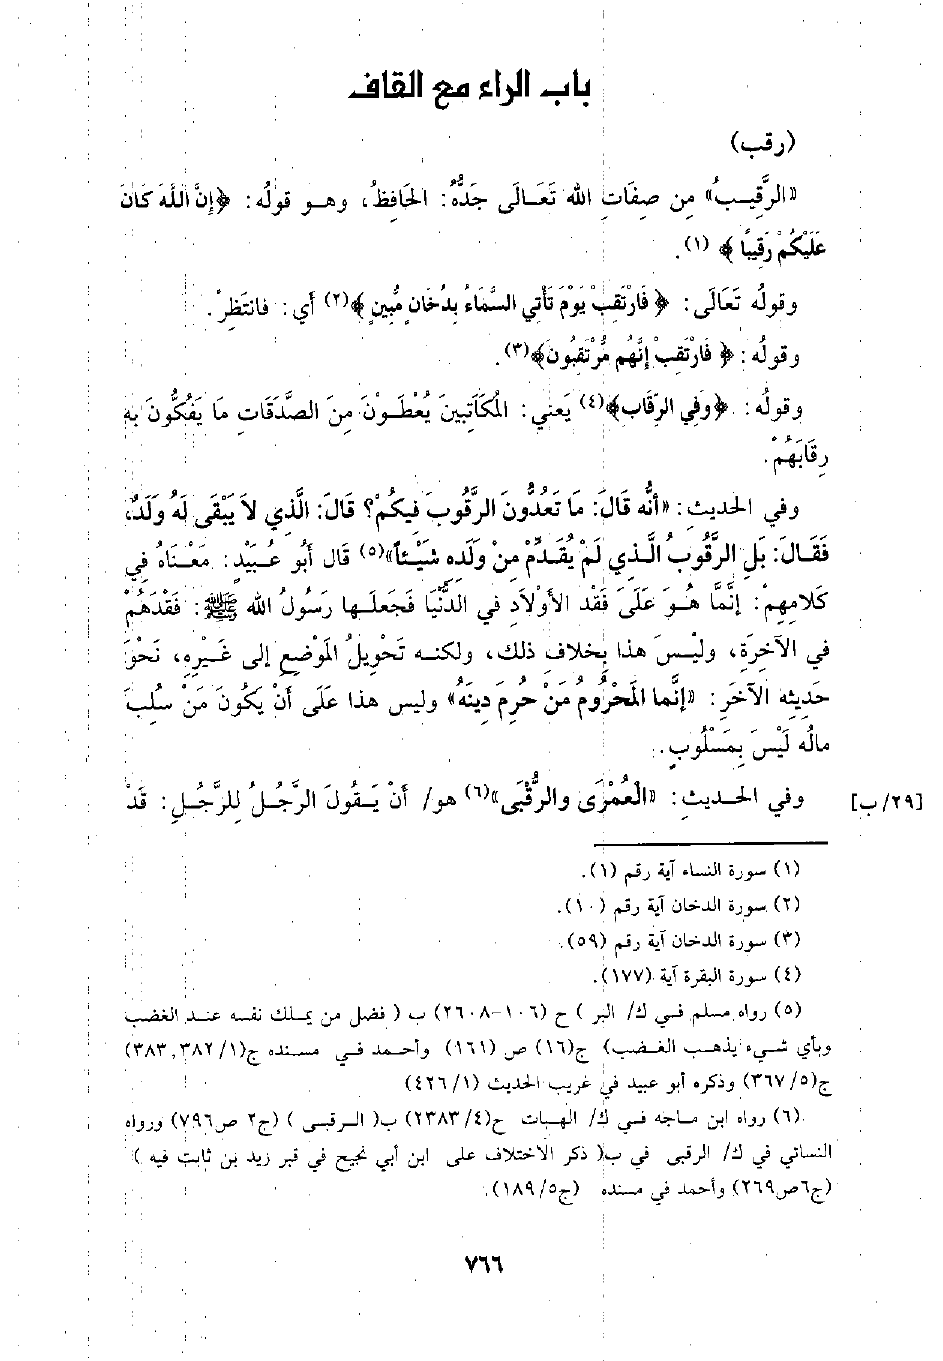 باب الراء مع القاف
(رقب)
«الرَّقِيبُ» مِن صِفَاتِ الله تَعَالَى جَدُّهُ: الحَافِظُ، وهو قولُه: ﴿إِنَّ اللَّهَ كَانَ
عَلَيْكُمْ رَقِيبًا﴾ (١).
وقولُه تَعَالَى: ﴿فَارْتَقِبْ يَوْمَ تَأْتِي السَّمَاءُ بِدُخَانٍ مُّبِينٍ﴾(٢) أي: فانتَظِرْ.
وقولُه: ﴿فَارْتَقِبْ إِنَّهُم مُّرْتَقِبُونَ﴾(٣).
وقولُه: ﴿وَفِي الرِّقَابِ﴾(٤) يَعني: المُكَاتَبينَ يُعْطَوْنَ مِنَ الصَّدَقَاتِ مَا يَفُكُّونَ بِهِ
رِقَابَهُمْ.
وفي الحديثِ: «أنَّه قَالَ: مَا تَعُدُّونَ الرَّقُوبَ فِيكُمْ؟ قَالَ: الَّذي لاَ يَبْقَى لَهُ وَلَدٌ،
فَقَالَ: بَلِ الرَّقُوبُ الَّذي لَمْ يُقَدِّمْ مِنْ وَلَدِه شَيْئاً»(٥) قال أبُو عُبَيْدٍ: مَعْنَاهُ فِي
كَلامِهِمْ: إنَّمَا هُوَ عَلَىَ فَقْد الأوْلاَدِ في الدُّنْيَا فَجَعلَها رَسُولُ الله ﷺ: فَقْدَهُمْ
في الآخِرَةِ، وليْسَ هذا بِخلافِ ذلك، ولكنه تَحْوِيلُ المَوْضِعِ إلى غَيْرِهِ، نَحْوَ
حَديثِه الآخَرِ: «إنَّما المَحْرُومُ مَنْ حُرِمَ دِينَهُ» وليس هذا عَلَى أنْ يَكُونَ مَنْ سُلِبَ
مالُه لَيْسَ بِمَسْلُوبٍ.
وفي الحديثِ: «العُمْرَى والرُّقْبَى»(٦) هو/ أنْ يَقُولَ الرَّجُلُ للرَّجُلِ: قَدْ [٢٩/ب]
(١) سورة النساء آية رقم (١).
(٢) سورة الدخان آية رقم (١٠).
(٣) سورة الدخان آية رقم (٥٩).
(٤) سورة البقرة آية (١٧٧).
(٥) رواه مسلم في ك/ البر ) ح (١٠٦-٢٦٠٨) ب ( فضل من يملك نفسه عند الغضب
وبأي شيء يذهب الغضب) ج(١٦) ص (١٦١) وأحمد في مسنده ج(١/ ٣٨٢, ٣٨٣)
ج(٥/ ٣٦٧) وذكره أبو عبيد في غريب الحديث (١/ ٤٢٦)
(٦) رواه ابن ماجه في ك/ الهبات ح(٤/ ٢٣٨٣) ب( الرقبى ) (ج٢ ص٧٩٦) ورواه
النسائي في ك/ الرقبى في ب( ذكر الاختلاف على ابن أبي نجيح في قبر زيد بن ثابت فيه )
(ج٦ص٢٦٩) وأحمد في مسنده (ج٥/ ١٨٩).
٧٦٦